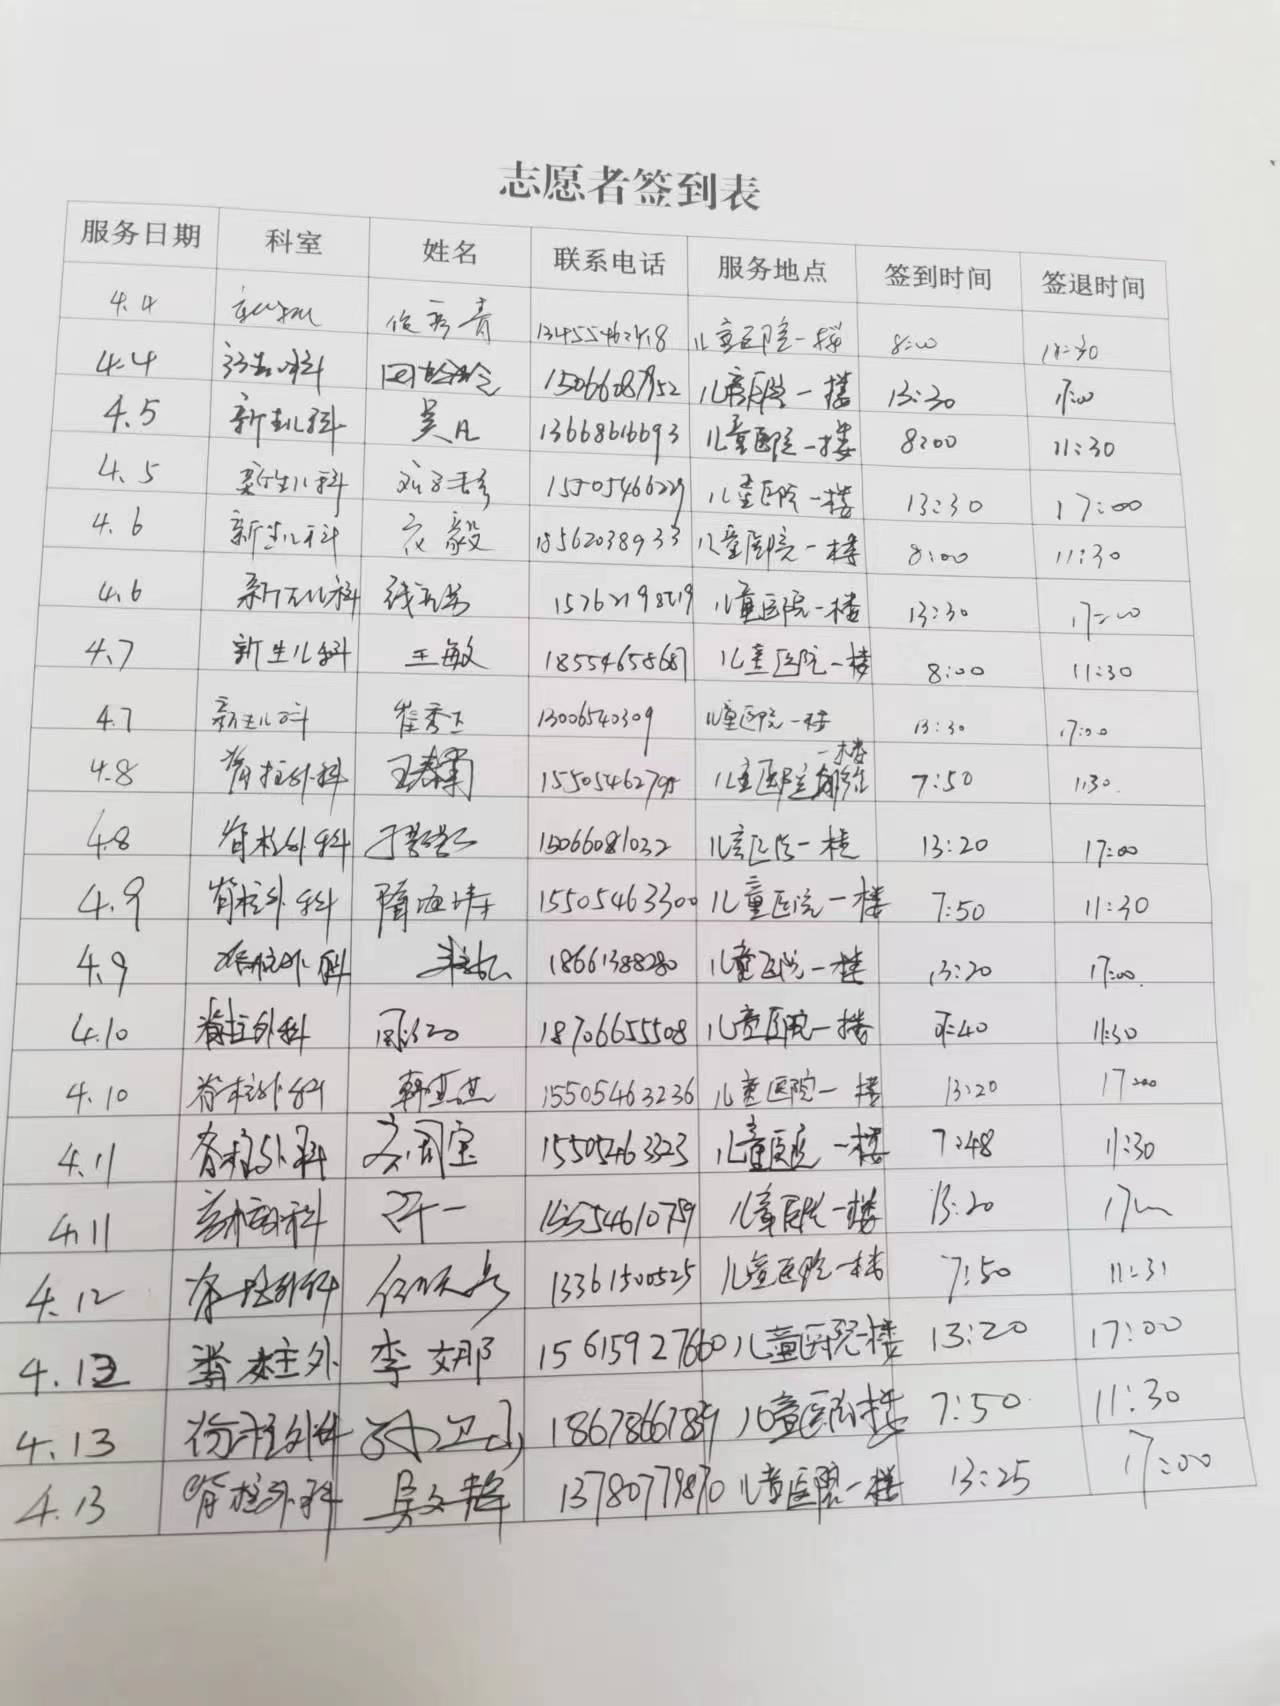 志愿者签到表
服务日期 科室 姓名 联系电话 服务地点 签到时间 签退时间
4.4 儿童医院一楼 8:00 11:30
4.4 儿童医院一楼 13:30 17:00
4.5 新生儿科 吴凡 13668616693 儿童医院一楼 8:00 11:30
4.5 新生儿科 15505466229 儿童医院一楼 13:30 17:00
4.6 新生儿科 衣毅 18562038933 儿童医院一楼 8:00 11:30
4.6 新生儿科 儿童医院一楼 13:30 17:00
4.7 新生儿科 王敏 18554658687 儿童医院一楼 8:00 11:30
4.7 新生儿科 13006540309 儿童医院一楼 13:30 17:00
4.8 脊柱外科 王春雷 儿童医院 一楼 7:50 11:30
4.8 脊柱外科 15066081032 儿童医院一楼 13:20 17:00
4.9 脊柱外科 隋海涛 15505463300 儿童医院一楼 7:50 11:30
4.9 脊柱外科 18661388280 儿童医院一楼 13:20 17:00
4.10 脊柱外科 18706655508 儿童医院一楼 7:40 11:30
4.10 脊柱外科 15505463236 儿童医院一楼 13:20 17:00
4.11 脊柱外科 15505463323 儿童医院一楼 7:48 11:30
4.11 脊柱外科 儿童医院一楼 13:20
4.12 脊柱外科 13361500525 儿童医院一楼 7:50 11:31
4.12 脊柱外 李文娜 15615927660 儿童医院一楼 13:20 17:00
4.13 脊柱外科 孙卫山 18678667859 儿童医院一楼 7:50 11:30
4.13 脊柱外科 吴文峰 13780779870 儿童医院一楼 13:25 17:00